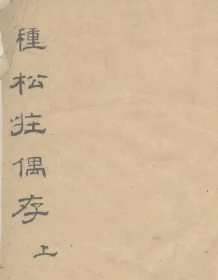 種松莊偶存 上